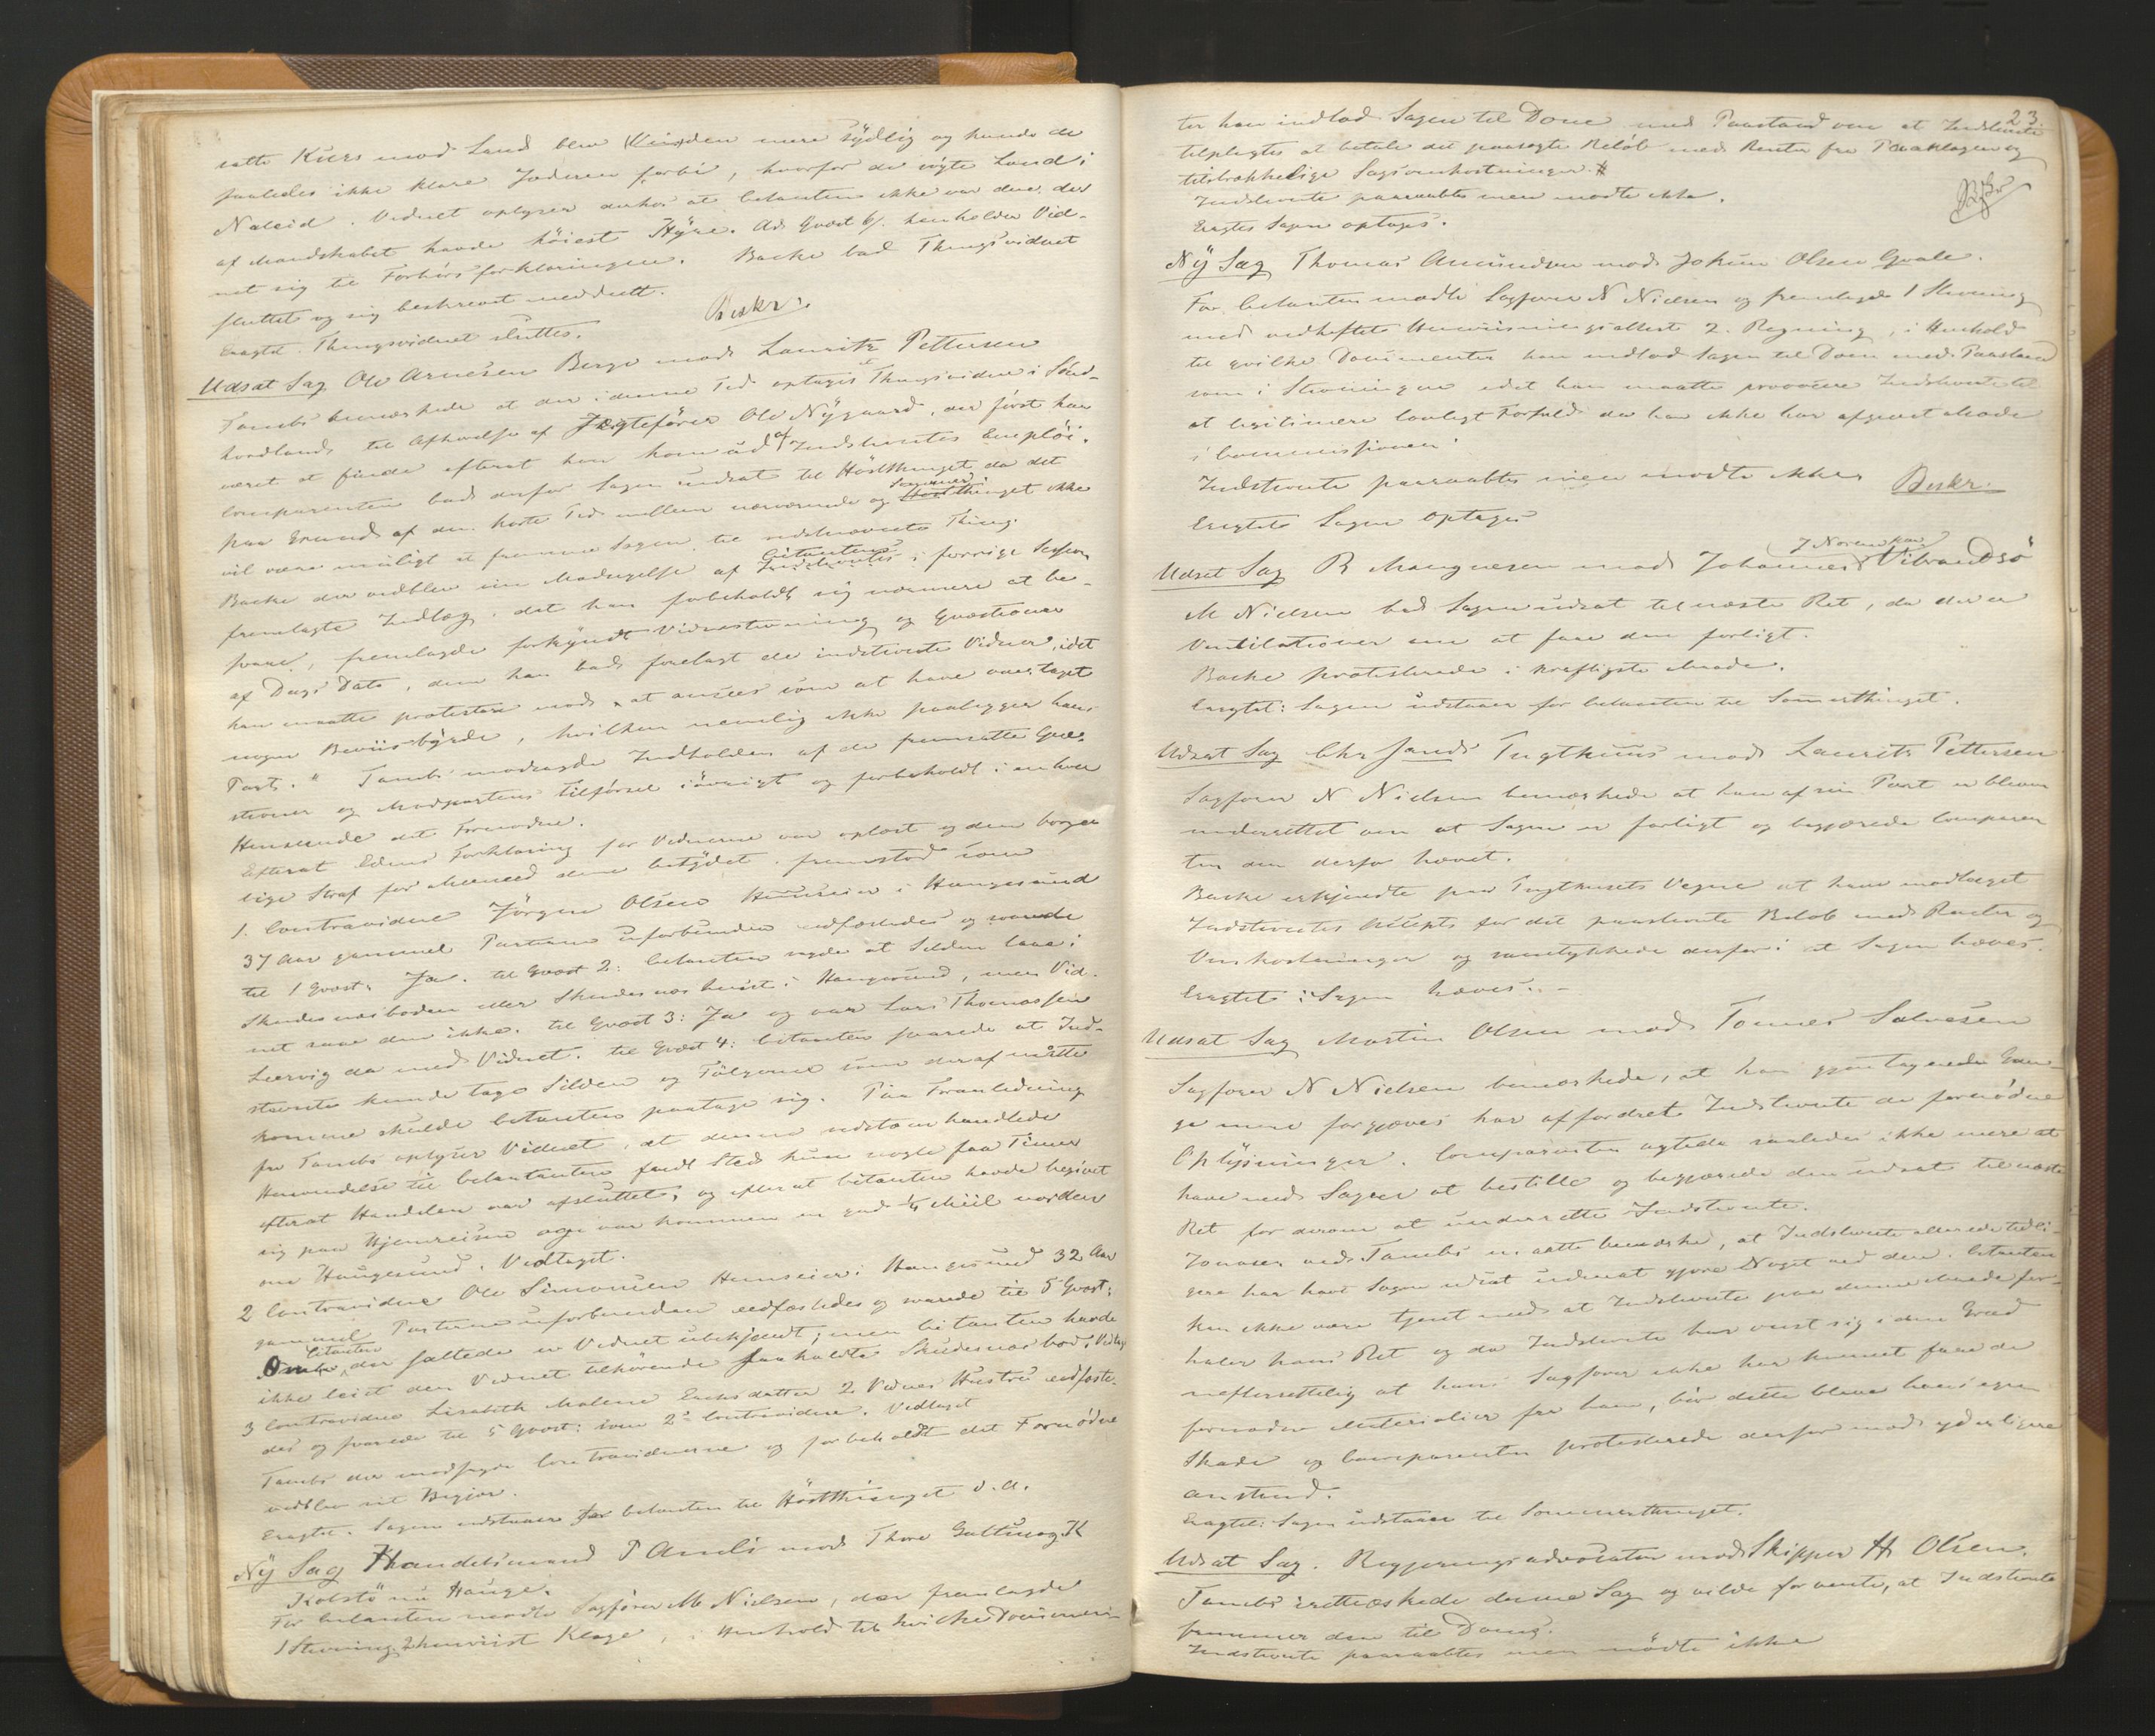 satte Kurs mod Land blev Vinden mere sydlig og kunde de
saaledes ikke klare Jæderen forbi, hvorfor de søgte Land i
Naleid. Vidnet oplyser derhos at Citanten ikke var den der
af Mandskabet havde höiest Hyre. Ad Qvæst 6/. henholder Vid-
net sig til Forhörsforklaringen. Backe bad Thingsvidnet
sluttet og sig beskrevet meddeelt.
Eragtet. Thingsvidnet sluttes. Beskr.
Udsat Sag Ole Arnesen Berge mod Lauritz Pettersen
Tambs bemærkede at der i denne Tid optages Thingsvidne i Sönd-
hordland til Afhörelse af Jægtefører Ole Nygaard, der först har
været at finde efterat han kom ud af Indstevntes Emplöi.
Comparenten bad derfor Sagen udsat til Höstthinget da det
paa Grund af den korte Tid mellem nærværende og Sommerthinget ikke
vil være muligt at fremme Sagen til sidstnævnte Thing.
Backe der vedblev sin Modsigelse af Citantens i forrige Session
fremlagte Indlæg, det han forbeholdt sig nærmere at be-
svare, fremlagde forkyndt Vidnestevning og Qvæstioner
af Dags Dato, dem han bad forelagt de indstevnte Vidner, idet
han maatte protestere mod at ansees som at have overtaget
nogen Beviisbyrde, hvilken nemlig ikke paaligger hans
Part." Tambs modsagde Indholden af de fremsatte Qvæ-
stioner og Modpartens Tilførsel iøvrigt og forbeholdt i enhver
Henseende det Fornødne.
Efterat Edens Forklaring for Vidnerne var oplæst og den borger
lige Straf for Meeneed dem betydet, fremstod som
1. Contravidne Jörgen Olsen Huuseier i Haugesund
37 Aar gammel Parterne uforbunden edfæstedes og svarede
til 1 Qvæst: Ja. til Qvæst 2: Citanten sagde at Silden laae i
Skudesnæsboden eller Skudesnæshuset i Haugesund, men Vid-
net saae den ikke. til Qvæst 3: Ja og var Lars Thomassen
Leervig da med Vidnet. til Qvæst 4: Citanten svarede at Ind-
stevnte kunde tage Silden og Følgerne som deraf måtte
komme skulde Citanten paatage sig. Paa Foranledning
fra Tambs oplyser Vidnet, at denne sidstomhandlede
Henvendelse til Citanten fandt Sted kun nogle faa Timer
efterat Handelen var afsluttet, og efter at Citanten havde begivet
sig paa Hjemreisen og var kommen en god ¼ Miil norden
om Haugesund. Vedtaget.
2 Contravidne Ole Simonsen Huuseier i Haugesund 32 Aar
gammel Parterne uforbunden eedfæstedes og svarede til 5 Qvæst:
Om Citanten der saltede er Vidnet ubekjendt; men Citanten havde
ikke leiet den Vidnet tilhørende saakaldte Skudesnæsbod. Vedtag
3 Contravidne Lisabeth Malene Eriksdatter 2 Vidnes Hustru eedfæste-
des og svarede til 5 Qvæst: som 2det Contravidne. Vedtaget
Tambs der modsagde Contravidnerne og forbeholdt det Fornødne
vedblev sit Begjær.
Eragtet. Sagen udstaaer for Citanten til Höstthinget d. A.
Ny Sag Handelsmand P Amli mod Thore Guttung K
Kolstö nu Hauge.
For Citanten mødte Sagfører M Nielsen, der fremlagde
1 Stevning 2 henviist Klage, i Henhold til hvilke Documen-
23.
ter han indlod Sagen til Dom med Paastand om at Indstevnte
tilpligtes at betale det paasøgte Beløb med Renter fra Paaklagen og
tilstrækkelige Sagsomkostninger.
Indstevnte paaraabtes men mødte ikke.
Eragtes Sagen optages. Beskr
Ny Sag Thomas Amundsen mod Jokum Olsen Qvale.
For Citanten mødte Sagfører N Nielsen og fremlagde 1 Stevning
med vedheftet Henviisningsattest 2. Regning, i Henhold
til hvilke Documenter han indlod Sagen til Dom med Paastand
som i Stevningen idet han maatte provocere Indstevnte til
at legitimere lovligt Forfald da han ikke har afgivet Møde
i Commissionen.
Indstevnte paaraabtes men mødte ikke. Beskr.
Eragtet Sagen optages
Udsat Sag R Mangnesen mod Johannes Vibrandsö
M Nielsen bad Sagen udsat til næste Ret, da der er
Ventilationer om at faae den forligt.
Backe protesterede i kraftigste Maade.
Eragtet: Sagen udstaaer for Citanten til Somerthinget.
Udsat Sag Chr Sands Tugthuus mod Laurits Pettersen
Sagfører N Nielsen bemærkede at han af sin Part er bleven
underrettet om at Sagen er forligt og begjærede Comparen
ten den derfor hævet.
Backe erkjendte paa Tugthusets Vegne at have modtaget
Indstevntes Accept for det paastevnte Beløb med Renter og
Omkostninger og samtykkede derfor i at Sagen hæves.
Eragtet: Sagen hæves. –
Udsat Sag Martin Olsen mod Tonnes Salvesen
Sagfører N Nielsen bemærkede, at han gjentagende Gan-
ge mere forgjæves har affordret Indstevnte de fornødne
Oplysninger. Comparenten agtede saaledes ikke mere at
have med Sagen at bestille og begjærede den udsat til næste
Ret for derom at underrette Indstevnte.
Jonasen ved Tambs maatte bemærke, at Indstevnte allerede tidli-
gere har havt Sagen udsat uden at gjøre Noget ved den. Citanten
kan ikke være tjent med at Indstevnte paa denne Maade for-
haler hans Ret og da Indstevnte har viist sig i den Grad
uefterrettelig at hans Sagfører ikke har kunnet faae de
fornødne Materialier fra ham, bör dette blive hans egen
Skade og Comparenten protesterede derfor mod yderligere
anstand.
Eragtet: Sagen udstaaer til Sommerthinget.
Udsat Sag. Regjeringsadvocaten mod Skipper H Olsen.
Tambs irettæskede denne Sag og vilde forvente, at Indstevnte
fremmer den til Doms.
Indstevnte paaraabtes men mödte ikke